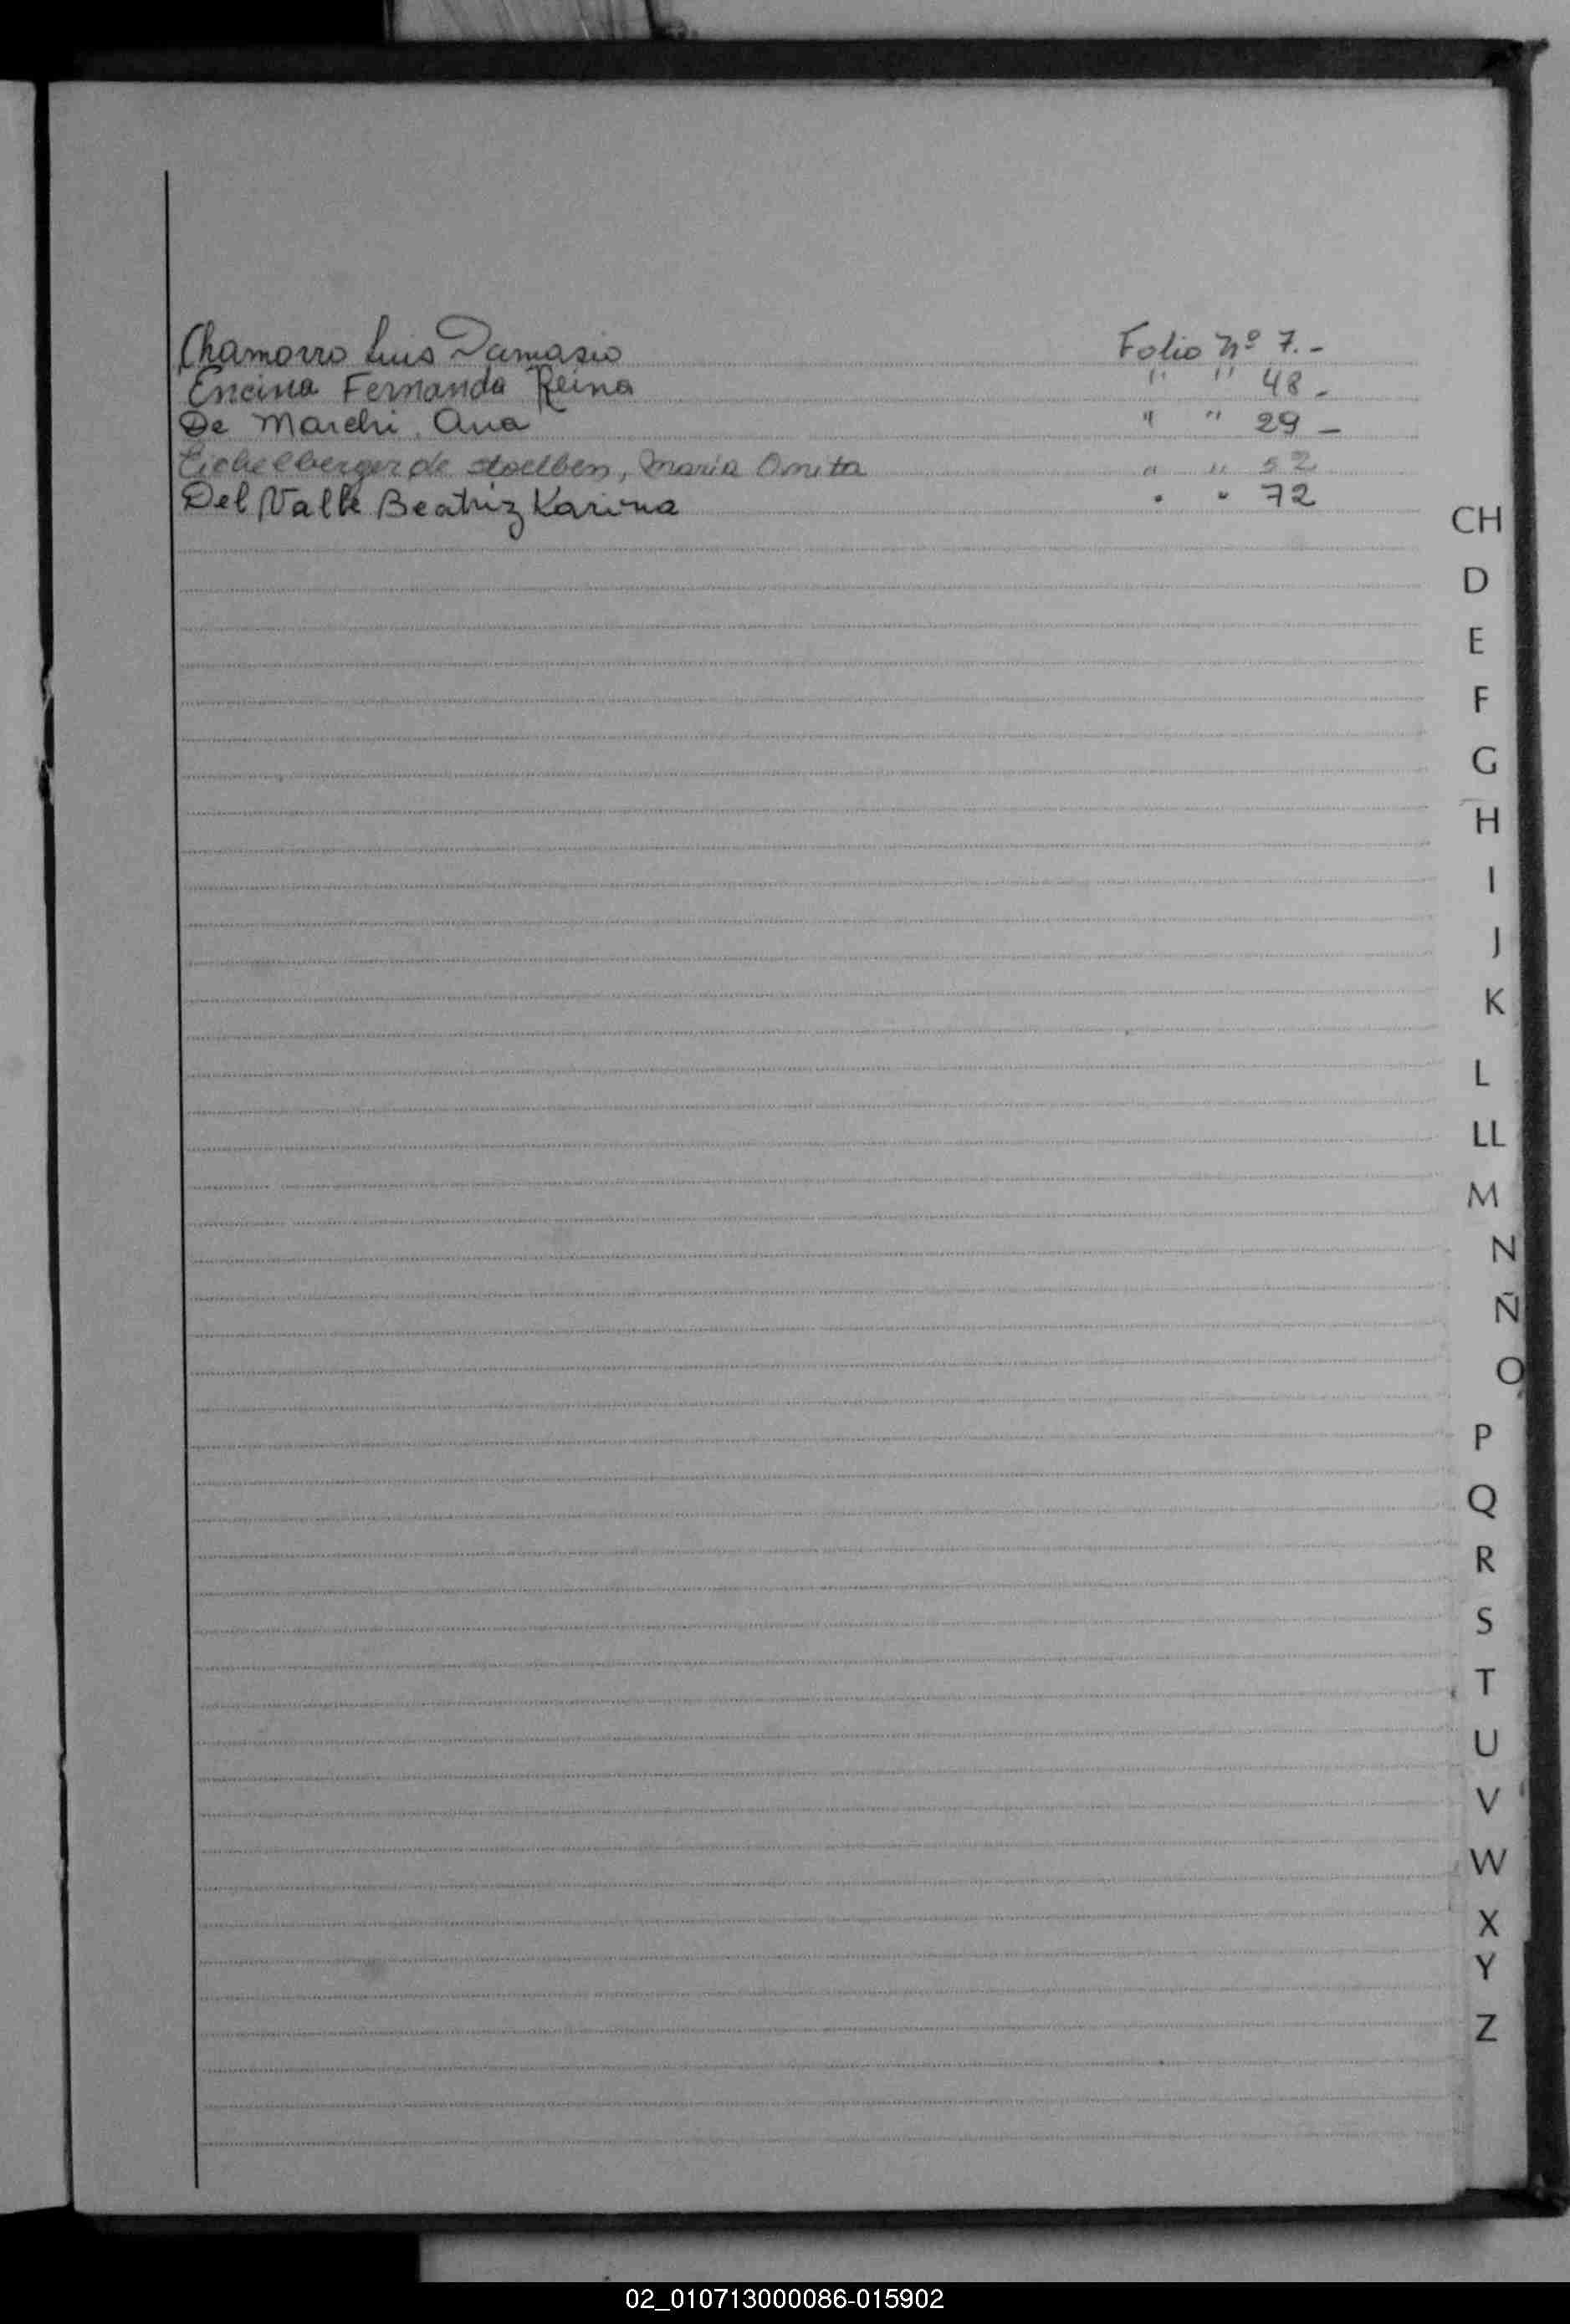 Chamorro Luis Damasio Folio Nº 7.-
Encina Fernanda Reina " " 48-
De Marchi, Ana " " 29-
Eichelberger de Stoelben, Maria Omita " " 52
Del Valle Beatriz Karina " " 72
CH
D
E
F
G
H
I
J
K
L
LL
M
N
Ñ
O
P
Q
R
S
T
U
V
W
X
Y
Z
02_010713000086-015902